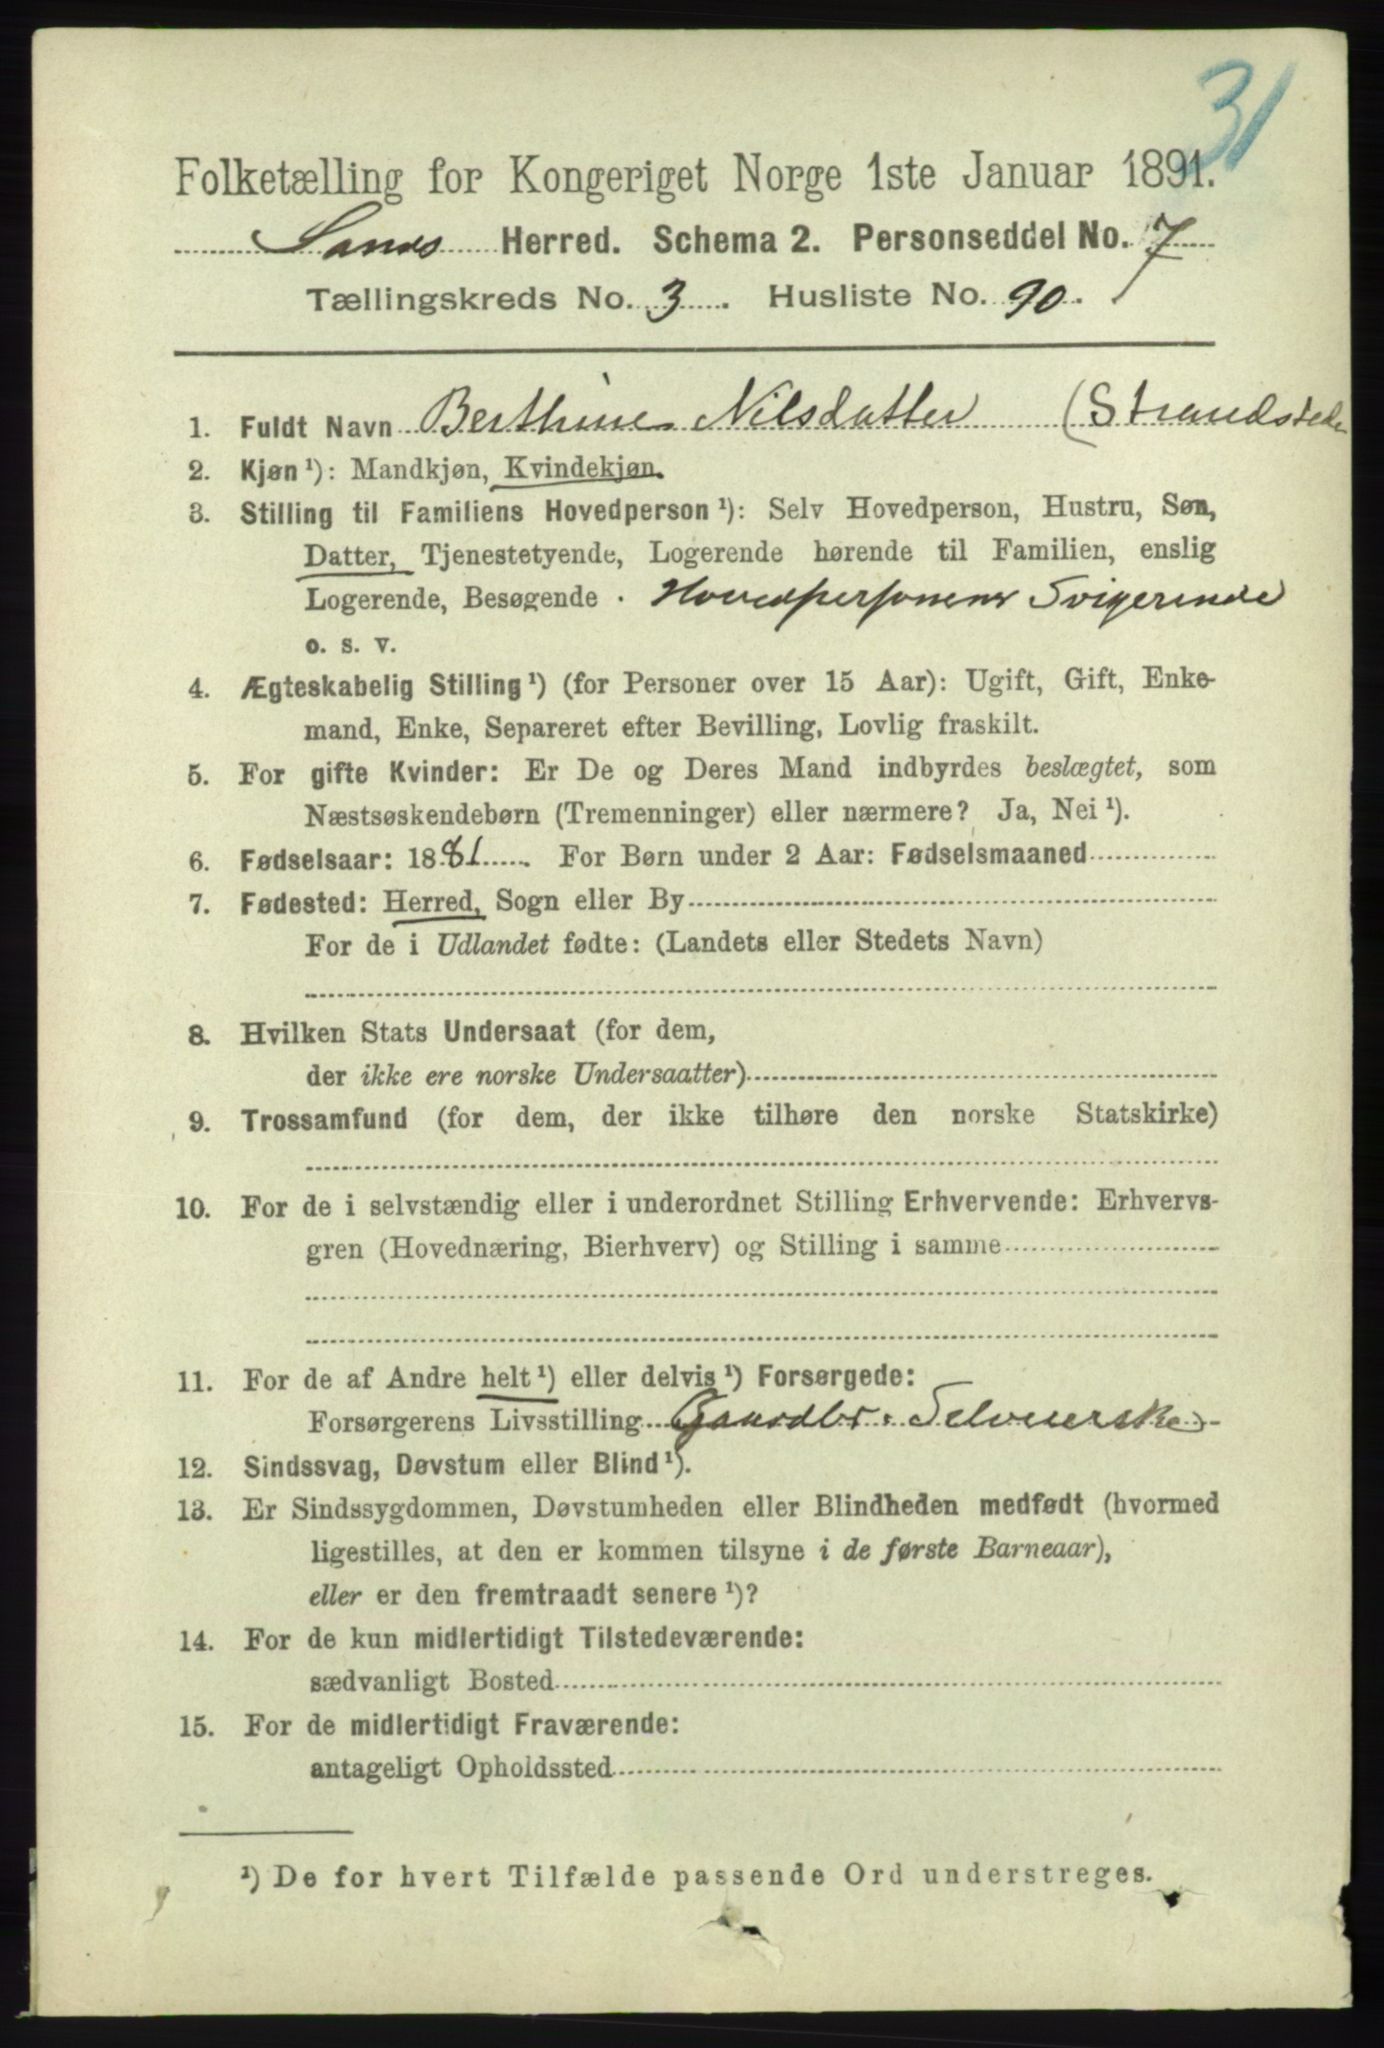 31
Folketælling for Kongeriget Norge 1ste Januar 1891.
Herred. Schema 2. Personseddel No. 7
Tællingskreds No. 3. Husliste No. 90.
1. Fuldt Navn Berthine Nilsdatter (Strandstede
2. Kjøn ¹): Mandkjøn, Kvindekjøn.
3. Stilling til Familiens Hovedperson ¹): Selv Hovedperson, Hustru, Søn,
Datter, Tjenestetyende, Logerende hørende til Familien, enslig
Logerende, Besøgende · Hovedpersonens
o. s. v.
4. Ægteskabelig Stilling ¹) (for Personer over 15 Aar): Ugift, Gift, Enke-
mand, Enke, Separeret efter Bevilling, Lovlig fraskilt.
5. For gifte Kvinder: Er De og Deres Mand indbyrdes beslægtet, som
Næstsøskendebørn (Tremenninger) eller nærmere? Ja, Nei ¹).
6. Fødselsaar: 1881. For Børn under 2 Aar: Fødselsmaaned
7. Fødested: Herred, Sogn eller By
For de i Udlandet fødte: (Landets eller Stedets Navn)
8. Hvilken Stats Undersaat (for dem,
der ikke ere norske Undersaatter)
9. Trossamfund (for dem, der ikke tilhøre den norske Statskirke)
10. For de i selvstændig eller i underordnet Stilling Erhvervende: Erhvervs-
gren (Hovednæring, Bierhverv) og Stilling i samme
11. For de af Andre helt ¹) eller delvis ¹) Forsørgede:
Forsørgerens Livsstilling Gaardbr. Selveierske
12. Sindssvag, Døvstum eller Blind ¹).
13. Er Sindssygdommen, Døvstumheden eller Blindheden medfødt (hvormed
ligestilles, at den er kommen tilsyne i de første Barneaar),
eller er den fremtraadt senere ¹)?
14. For de kun midlertidigt Tilstedeværende:
sædvanligt Bosted
15. For de midlertidigt Fraværende:
antageligt Opholdssted
¹) De for hvert Tilfælde passende Ord understreges.